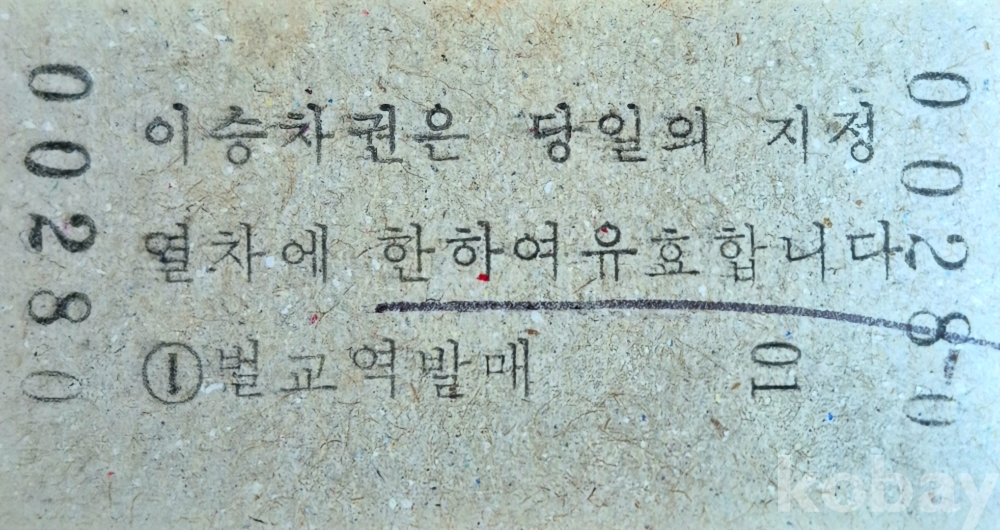 00280
이승차권은 당일의 지정
열차에 한하여유효합니다
①벌교역발매 01
00280
kobay